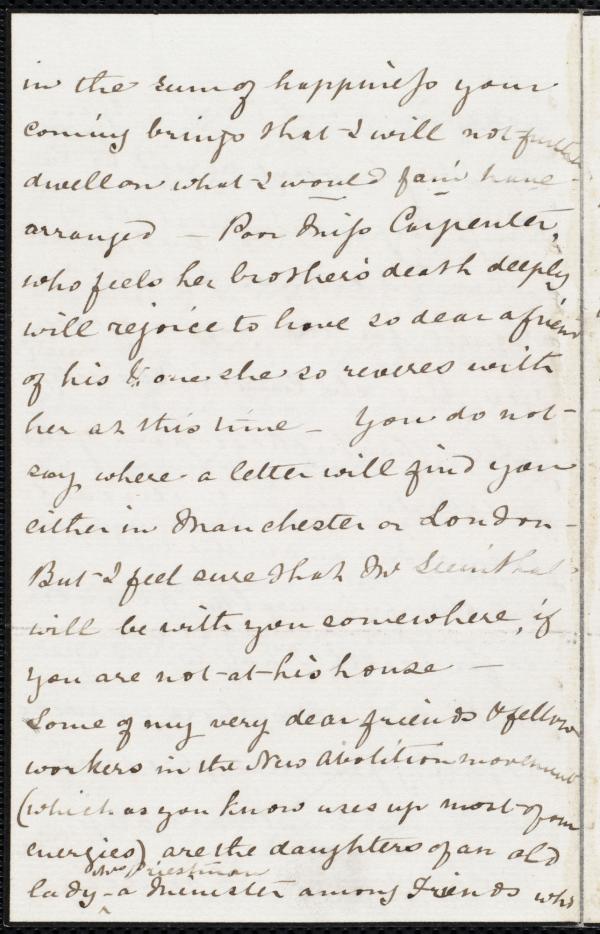 in the sum of happiness your
coming brings that I will not further
dwell on what I would fain have
arranged — Poor Miss Carpenter,
who feels her brother's death deeply
will rejoice to have so dear a friend
of his & one she so reveres with
her at this time — You do not
say where a letter will find you
either in Manchester or London —
But I feel sure that Mr Steinthal
will be with you somewhere, if
you are not at his house —
Some of my very dear friends & fellow
workers in the New Abolition movement
(which as you know uses up most of our
energies) are the daughters of an old
Mrs Priestman
lady - a Minister among Friends who